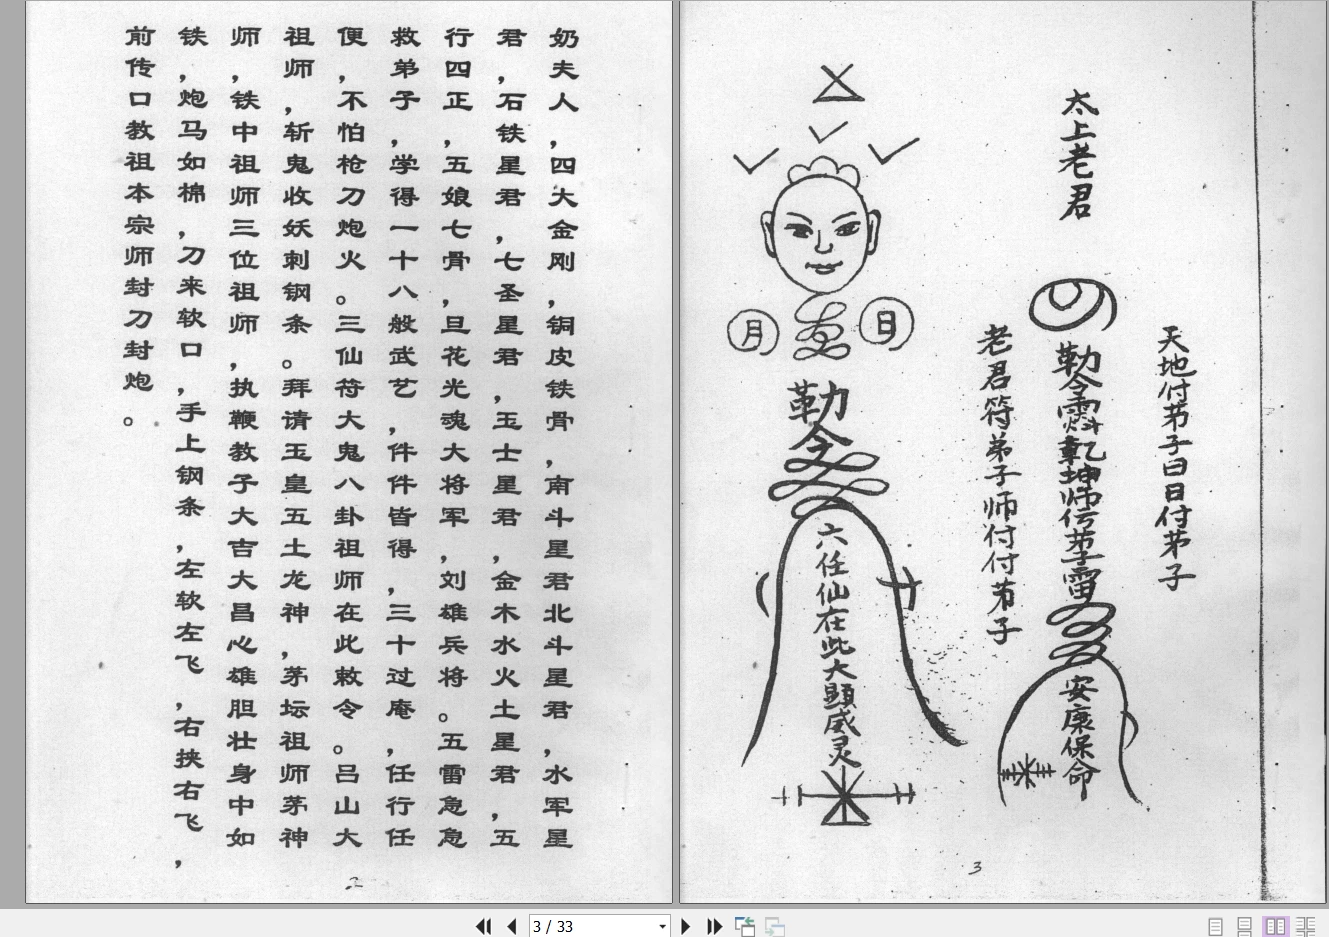 奶夫人，四大金刚，铜皮铁骨，南斗星君北斗星君，水军星
君，石铁星君，七圣星君，玉士星君，金木水火土星君，五
行四正，五娘七骨，旦花光魂大将军，刘雄兵将。五雷急急
救弟子，学得一十八般武艺，件件皆得，三十过庵，任行任
便，不怕枪刀炮火。三仙符大鬼八卦祖师在此敕令。吕山大
祖师，斩鬼收妖刺钢条。拜请玉皇五土龙神，茅坛祖师茅神
师，铁中祖师三位祖师，执鞭教子大吉大昌心雄胆壮身中如
铁，炮马如棉，刀来软口，手上钢条，左软左飞，右挟右飞，
前传口教祖本宗师封刀封炮。
2
太上老君
天地付弟子曰日付弟子
勒令
乾坤师
弟子雷
安康保命
老君符弟子师付付弟子
日
月
勒令
六任仙在此大顕威灵
3
3 / 33